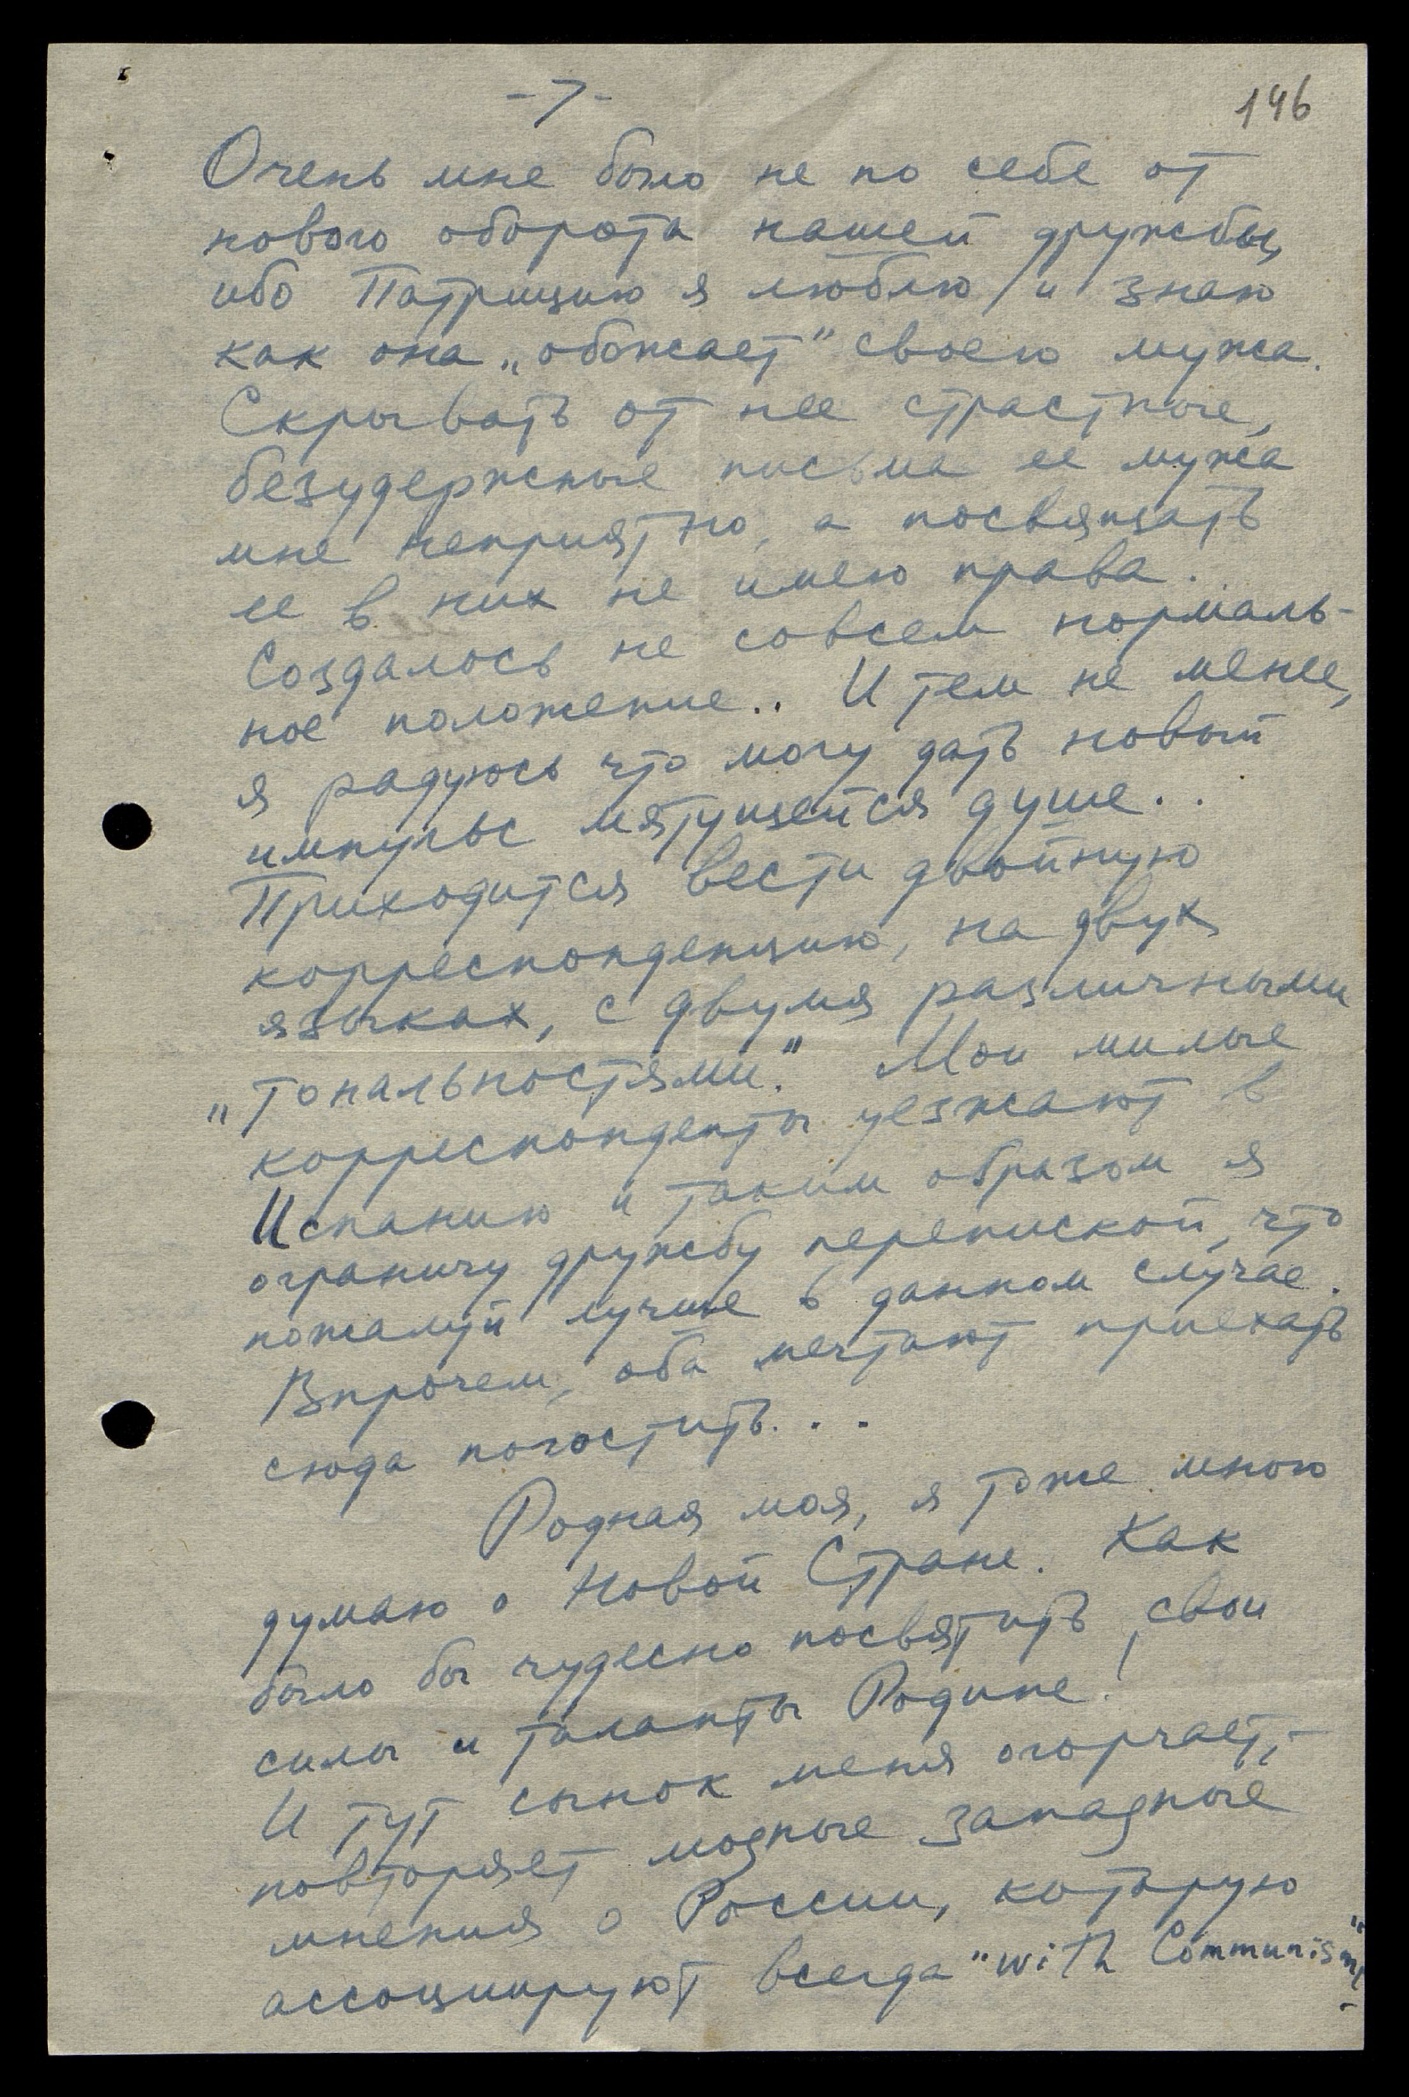 -7-
146
Очень мне было не по себе от
нового оборота нашей дружбы,
ибо Патрицию я люблю и знаю
как она „обожает" своего мужа.
Скрывать от нее страстные,
безудержные письма ее мужа
мне неприятно, а посвящать
ее в них не имею права.
Создалось не совсем нормаль-
ное положение.. И тем не менее,
я радуюсь что могу дать новый
импульс мятущейся душе..
Приходится вести двойную
корреспонденцию, на двух
языках, с двумя различными
„тональностями." Мои милые
корреспонденты уезжают в
Испанию и таким образом я
ограничу дружбу перепиской, что
пожалуй лучше в данном случае.
Впрочем, оба мечтают приехать
сюда погостить...
Родная моя, я тоже много
думаю о Новой Стране. Как
было бы чудесно посвятить свои
силы и таланты Родине!
И тут сынок меня огорчает,-
повторяет модные западные
мнения о России, которую
ассоциируют всегда "with Communism"-